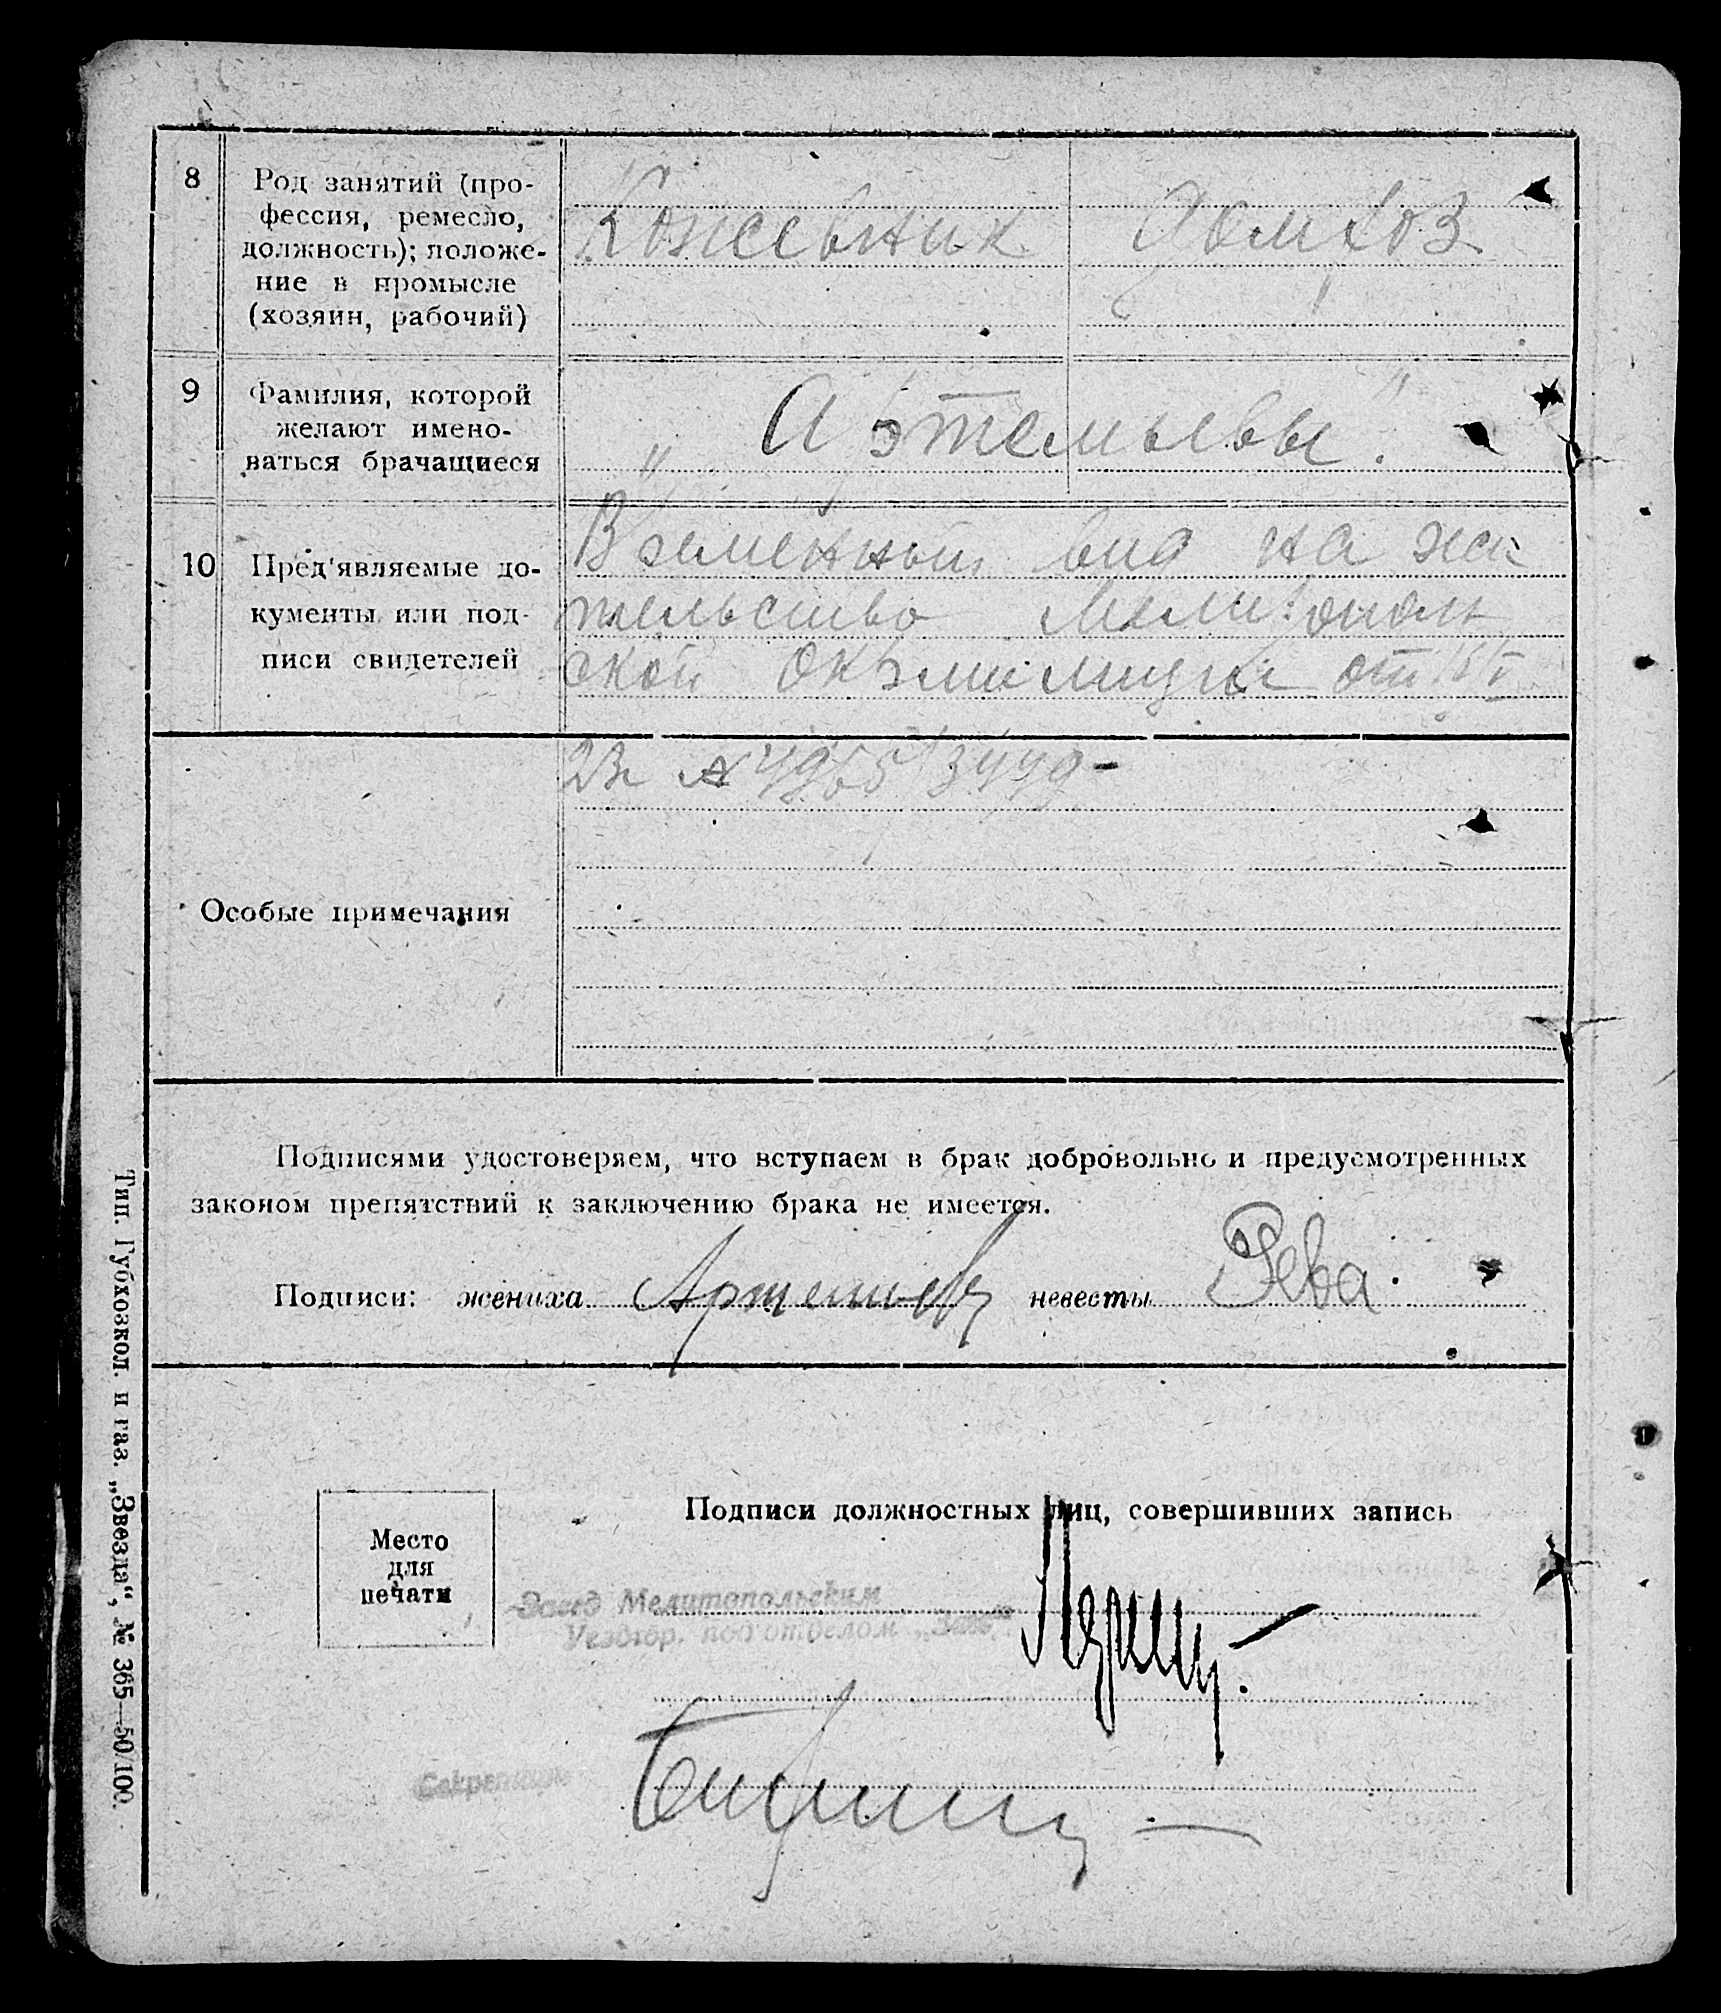 8 Род занятий (про-
фессия, ремесло,
должность); положе-
ние в промысле
(хозяин, рабочий)
Кожевник
Домхоз
9 Фамилия, которой
желают имено-
ваться брачащиеся
„ Артемьевы."
10 Пред'являемые до-
кументы или под-
писи свидетелей
Временный вид на жи
тельство Мелитополь
ской окрмилиции от
23г №
Особые примечания
Подписями удостоверяем, что вступаем в брак добровольно и предусмотренных
законом препятствий к заключению брака не имеется.
Подписи: жениха Артемьев невесты Рева.
Подписи должностных лиц, совершивших запись
Место
для
печати
Завед Мелитопольским
Уездгор. подотделом „Загс"
Секретарь
Тип. Губхозкол. и газ. „Звезда", № 365—50/100.